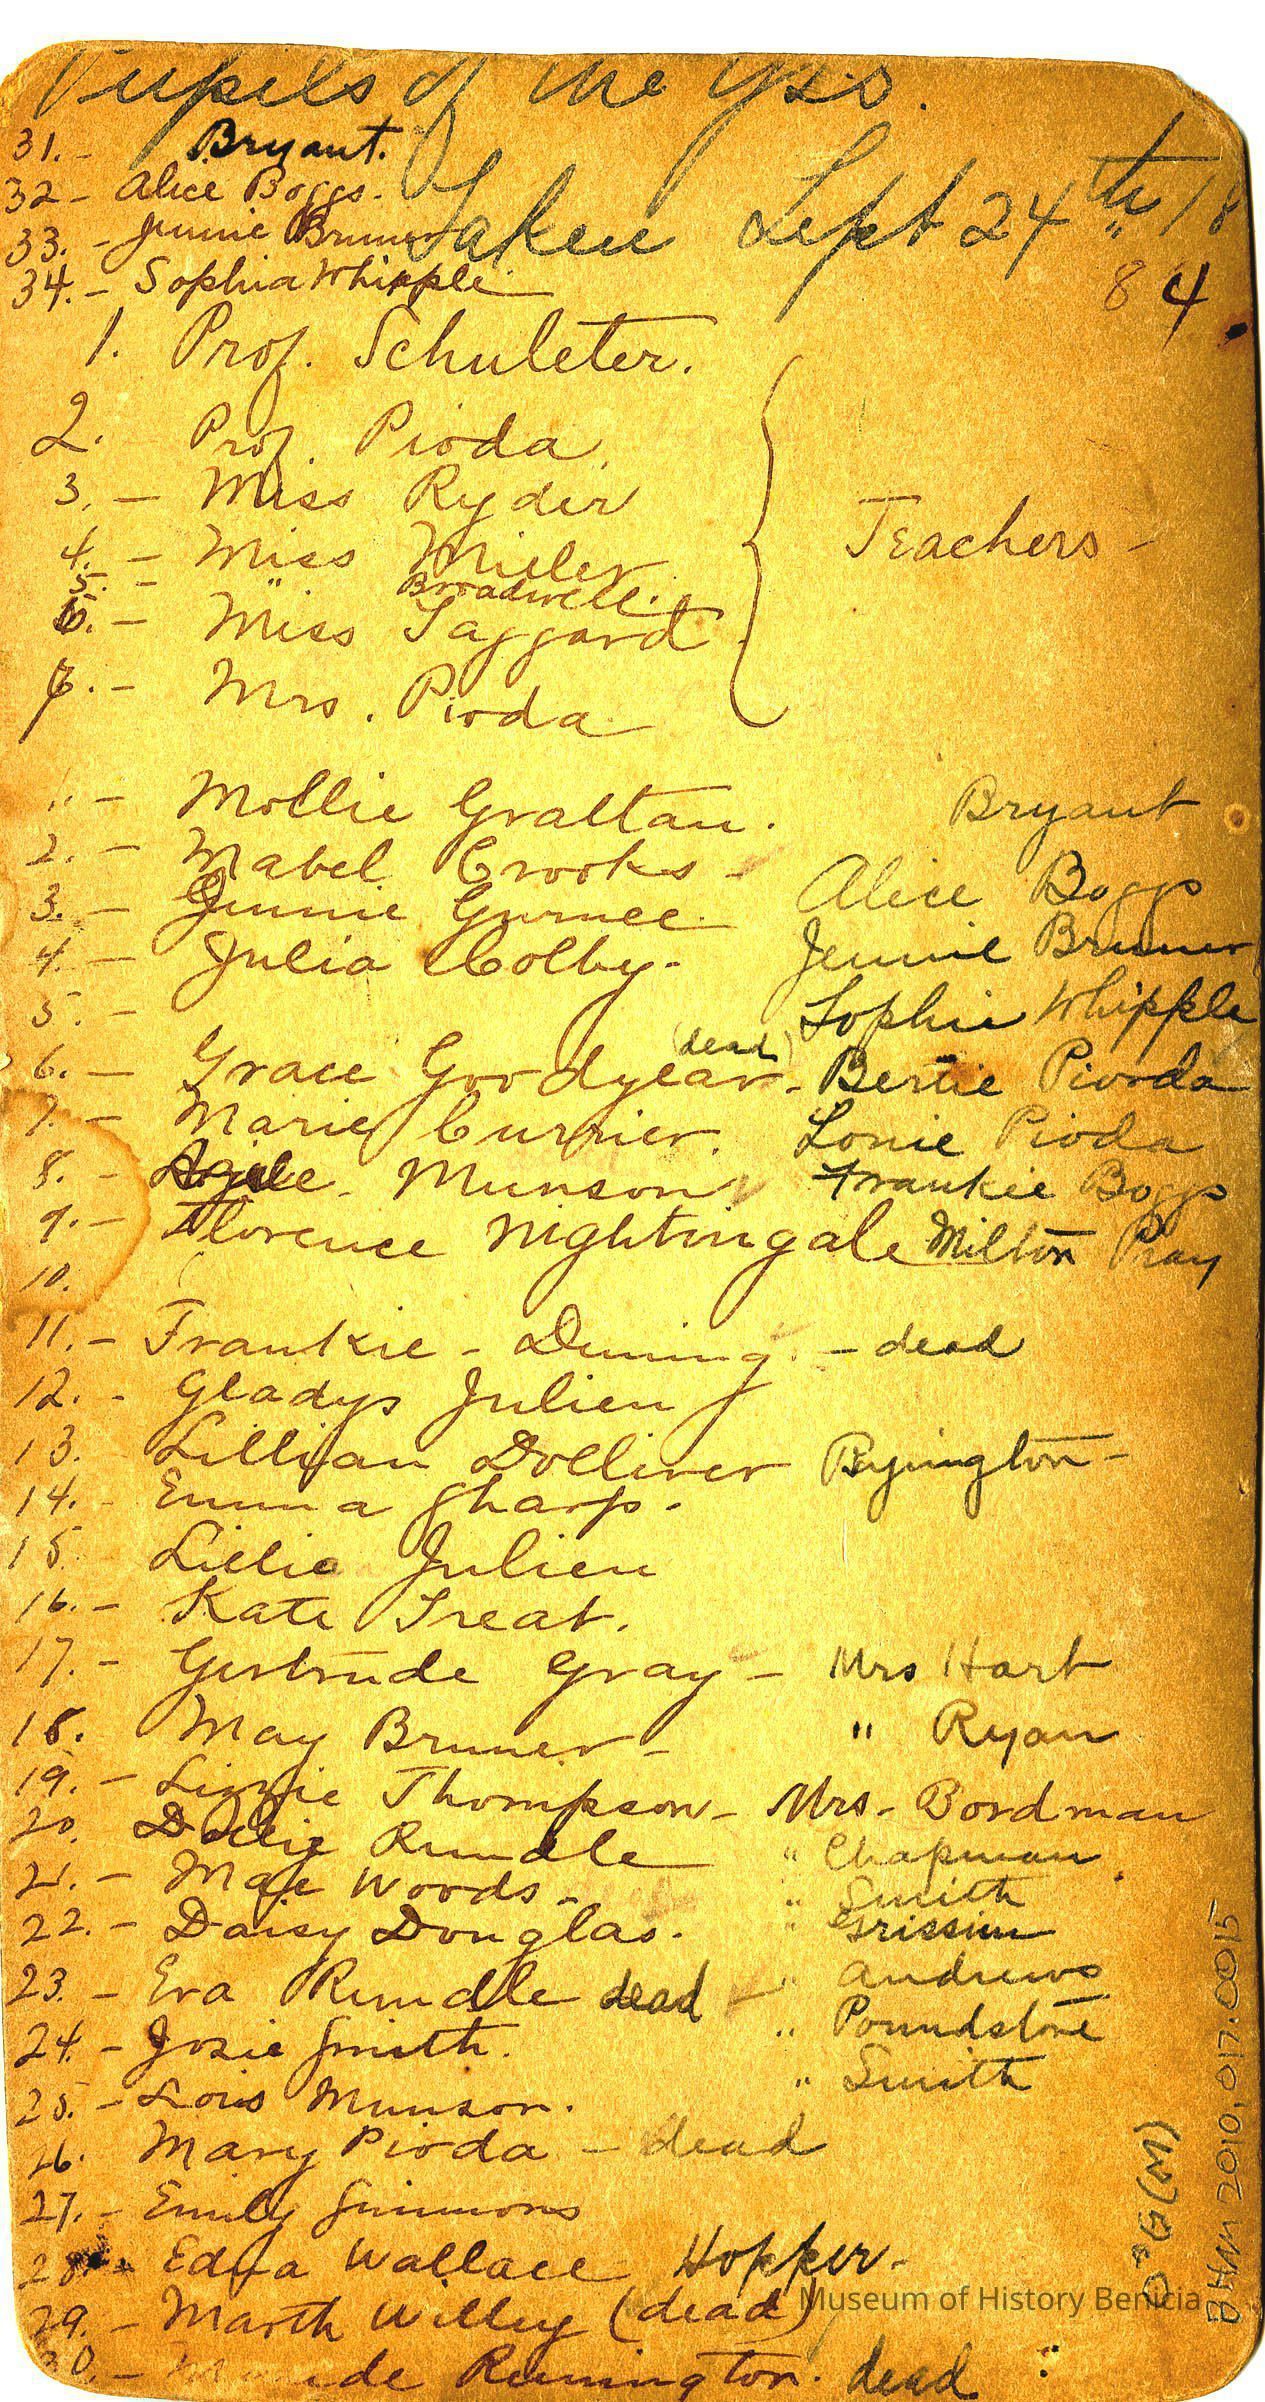 Pupils of the
31. - Bryant.
32 - Alice Boggs.
33. - Jennie Bruner
34. - Sophia Whipple
Taken Sept 24th 18
84.
1. Prof. Schuleter.
2. - Prof. Pioda.
3. - Miss Ryder
4. - Miss Miller
5. - " Broadwell.
6. - Miss Taggard
7. - Mrs. Pioda
Teachers -
1. - Mollie Grattan.
2. - Mabel Crooks -
3. - Jennie Gurnee
4. - Julia Colby -
5. -
6. - Grace Goodyear - (dead)
7. - Marie Currier.
8. - Munson
9. - Florence Nightingale
10.
Bryant
Alice Boggs
Jennie Bruner
Sophie Whipple
Bertie Piorda
Lonie Pioda
Frankie Boggs
Milton Pray
11. - Frankie - Dunning. - dead
12. - Gladys Julien
13. - Lillian Dolliver Byington -
14. - Emma Sharp -
15. Lillie Julien
16. - Kate Treat.
17. - Gertrude Gray - Mrs Hart
18. May Bruner - " Ryan
19. - Lizzie Thompson - Mrs - Bordman
20. Dollie Rundle " Chapman
21. - Mae Woods - " Smith
22. - Daisy Douglas. " Grissim
23. - Eva Rundle dead " Andrews
24. - Josie Smith. " Poundstone
25. - Lois Munson. " Smith
26. Mary Pioda - dead
27. - Emily Simmons
28. - Edna Wallace Hopper -
29. - Marth Willey (dead)
30. - Remington. dead
BHM 2010.017.0015
Museum of History Benicia